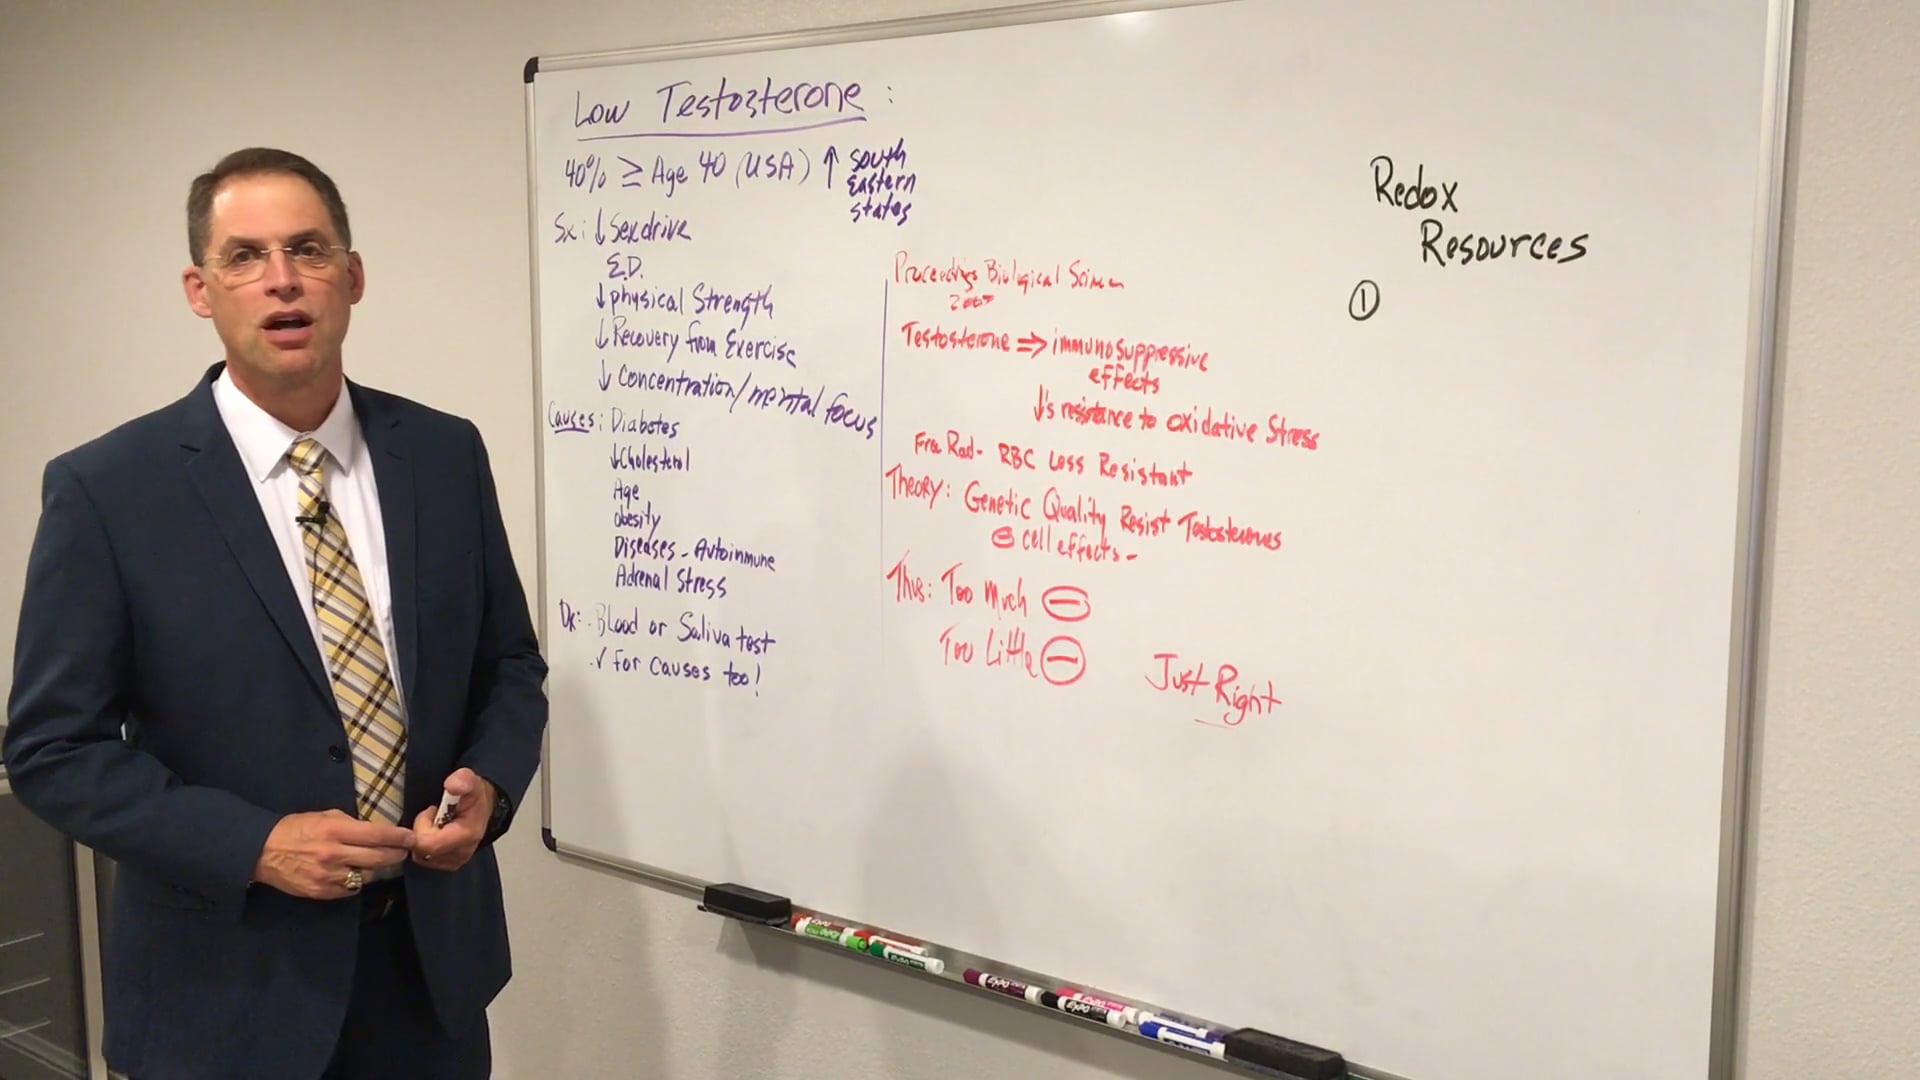 Low Testosterone:
40% ≥ Age 40 (USA) ↑ South
Eastern
states
Sx: ↓ Sex drive
E.D.
↓ physical Strength
↓ Recovery from Exercise
↓ Concentration/mental focus
Causes: Diabetes
↓Cholesterol
Age
obesity
Diseases - Autoimmune
Adrenal Stress
Dx: . Blood or Saliva test
.✓ for causes too!
Proceedings Biological
Testosterone ⇒ immunosuppressive
effects
↓'s resistance to oxidative stress
Free Rad - RBC Less Resistant
Theory: Genetic Quality Resist Testosterones
⊖ cell effects -
Thus: Too Much ⊖
Too Little ⊖
Just Right
Redox
Resources
①